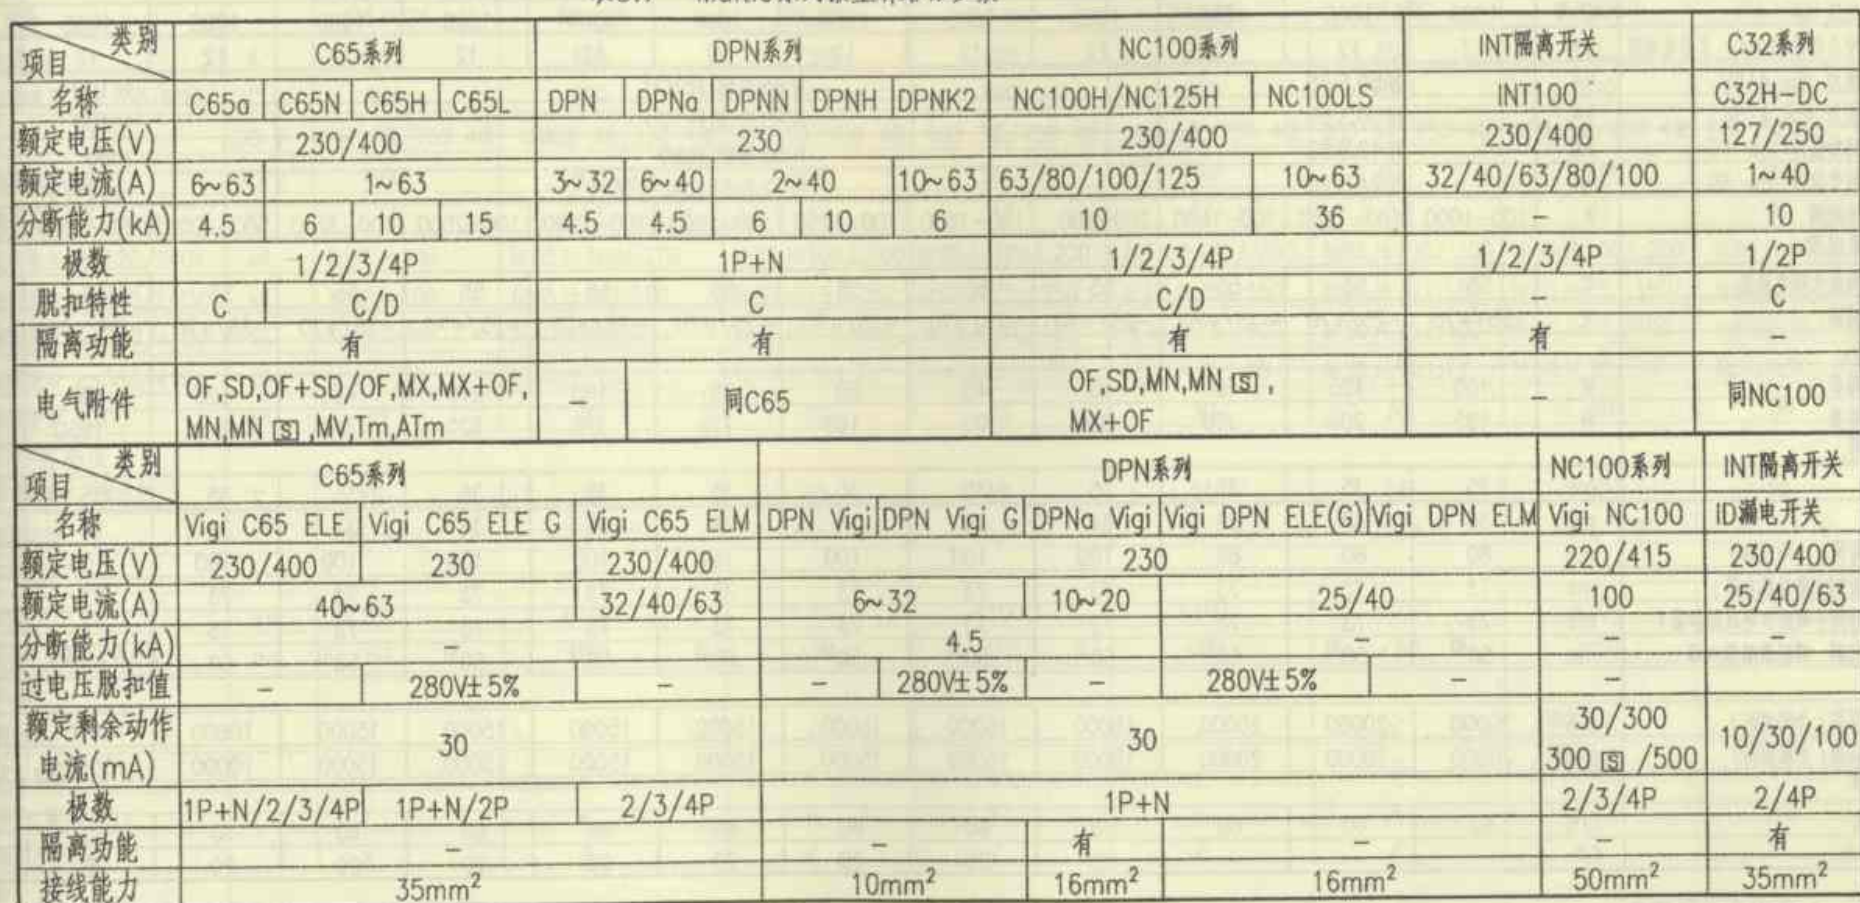 类别 项目 C65系列 DPN系列 NC100系列 INT隔离开关 C32系列
名称 C65a C65N C65H C65L DPN DPNa DPNN DPNH DPNK2 NC100H/NC125H NC100LS INT100 C32H-DC
额定电压(V) 230/400 230 230/400 230/400 127/250
额定电流(A) 6~63 1~63 3~32 6~40 2~40 10~63 63/80/100/125 10~63 32/40/63/80/100 1~40
分断能力(kA) 4.5 6 10 15 4.5 4.5 6 10 6 10 36 - 10
极数 1/2/3/4P 1P+N 1/2/3/4P 1/2/3/4P 1/2P
脱扣特性 C C/D C C/D - C
隔离功能 有 有 有 有 -
电气附件 OF,SD,OF+SD/OF,MX,MX+OF, - 同C65 OF,SD,MN,MN S , - 同NC100
MN,MN S ,MV,Tm,ATm MX+OF
类别 项目 C65系列 DPN系列 NC100系列 INT隔离开关
名称 Vigi C65 ELE Vigi C65 ELE G Vigi C65 ELM DPN Vigi DPN Vigi G DPNa Vigi Vigi DPN ELE(G) Vigi DPN ELM Vigi NC100 ID漏电开关
额定电压(V) 230/400 230 230/400 230 220/415 230/400
额定电流(A) 40~63 32/40/63 6~32 10~20 25/40 100 25/40/63
分断能力(kA) - 4.5 - - -
过电压脱扣值 - 280V±5% - - 280V±5% - 280V±5% - -
额定剩余动作 30 30 30/300 10/30/100
电流(mA) 300 S /500
极数 1P+N/2/3/4P 1P+N/2P 2/3/4P 1P+N 2/3/4P 2/4P
隔离功能 - - 有 - - 有
接线能力 35mm² 10mm² 16mm² 16mm² 50mm² 35mm²